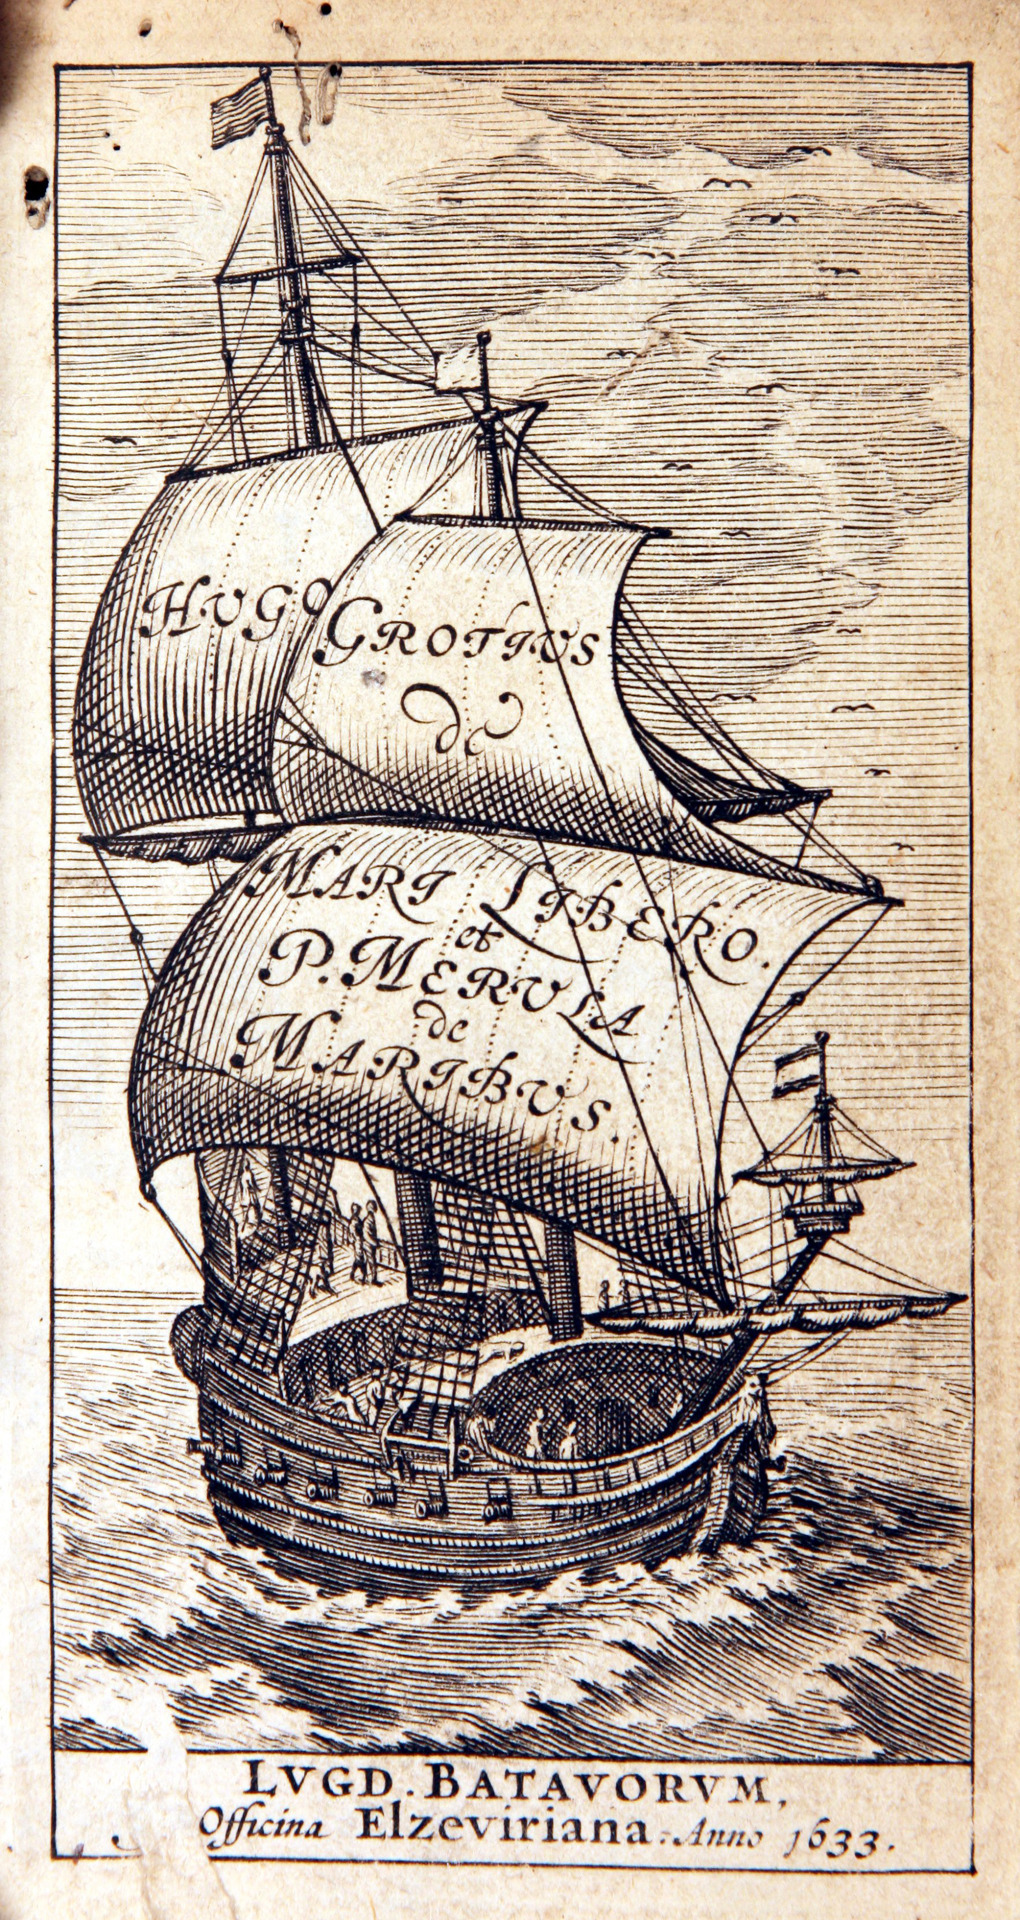 HUGO GROTIUS
de
MARI LIBERO.
et
P. MERULA
de
MARIBUS.
LVGD. BATAVORVM,
Officina Elzeviriana: Anno 1633.